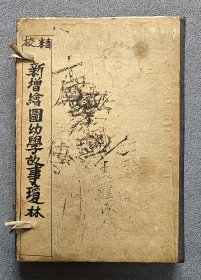 精校
新增繪圖幼學故事瓊林